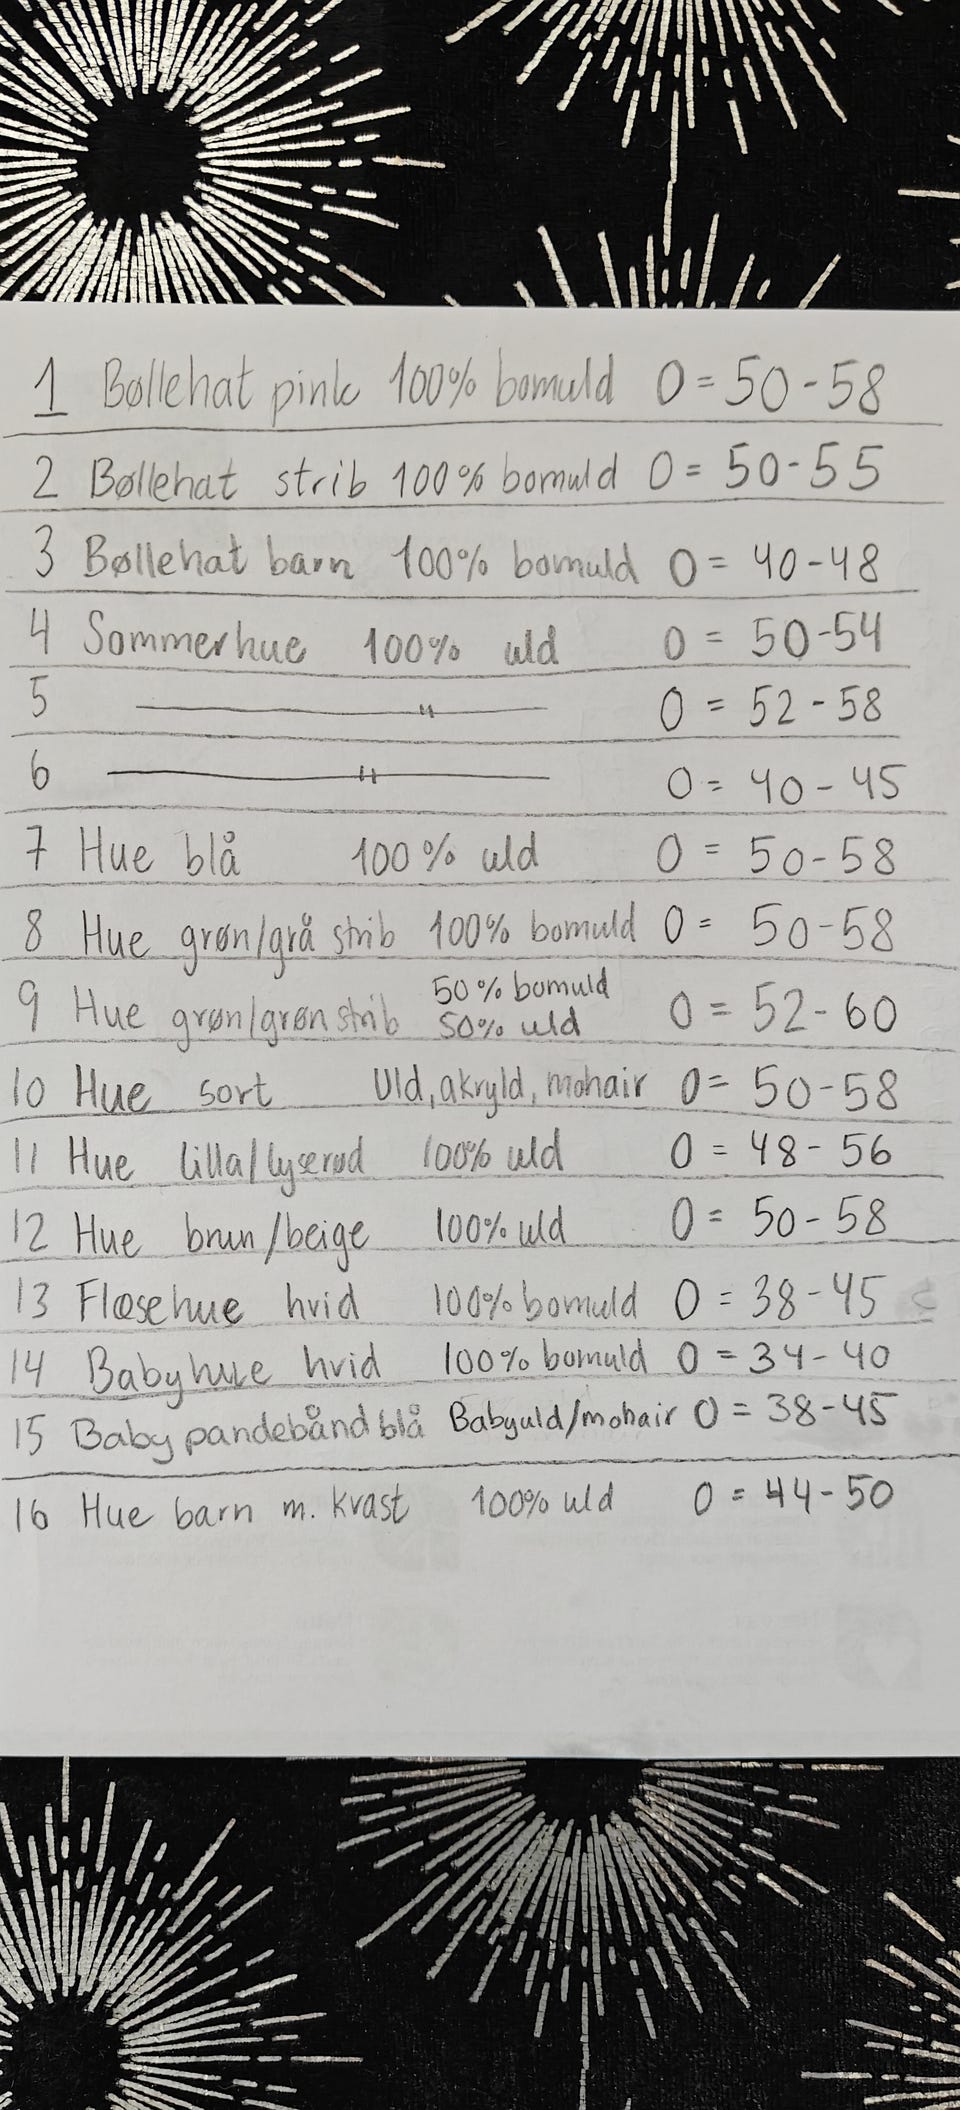 1 Bøllehat pink 100% bomuld O = 50-58
2 Bøllehat strib 100% bomuld O = 50-55
3 Bøllehat barn 100% bomuld O = 40-48
4 Sommerhue 100% uld O = 50-54
5 —— " —— O = 52-58
6 —— " —— O = 40-45
7 Hue blå 100% uld O = 50-58
8 Hue grøn/grå strib 100% bomuld O = 50-58
9 Hue grøn/grøn strib 50% bomuld 50% uld O = 52-60
10 Hue sort Uld, akryld, mohair O = 50-58
11 Hue lilla/lyserød 100% uld O = 48-56
12 Hue brun/beige 100% uld O = 50-58
13 Flæsehue hvid 100% bomuld O = 38-45
14 Babyhue hvid 100% bomuld O = 34-40
15 Baby pandebånd blå Babyuld/mohair O = 38-45
16 Hue barn m. kvast 100% uld O = 44-50